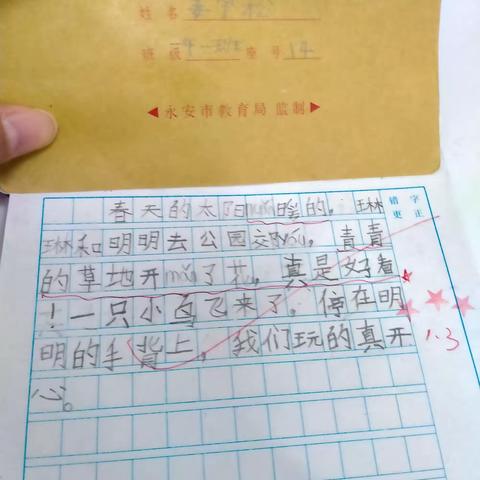 姓名
班级 一年一班 座号 14
◀永安市教育局 监制▶
春天的太阳nuǎn啥的。琳
错字更正
琳和明明去公园交wán。青青
的草地开mǎn了花,真是好看
!一只小鸟飞来了。停在明
明的手背上。我们玩的真开
1.3
心。